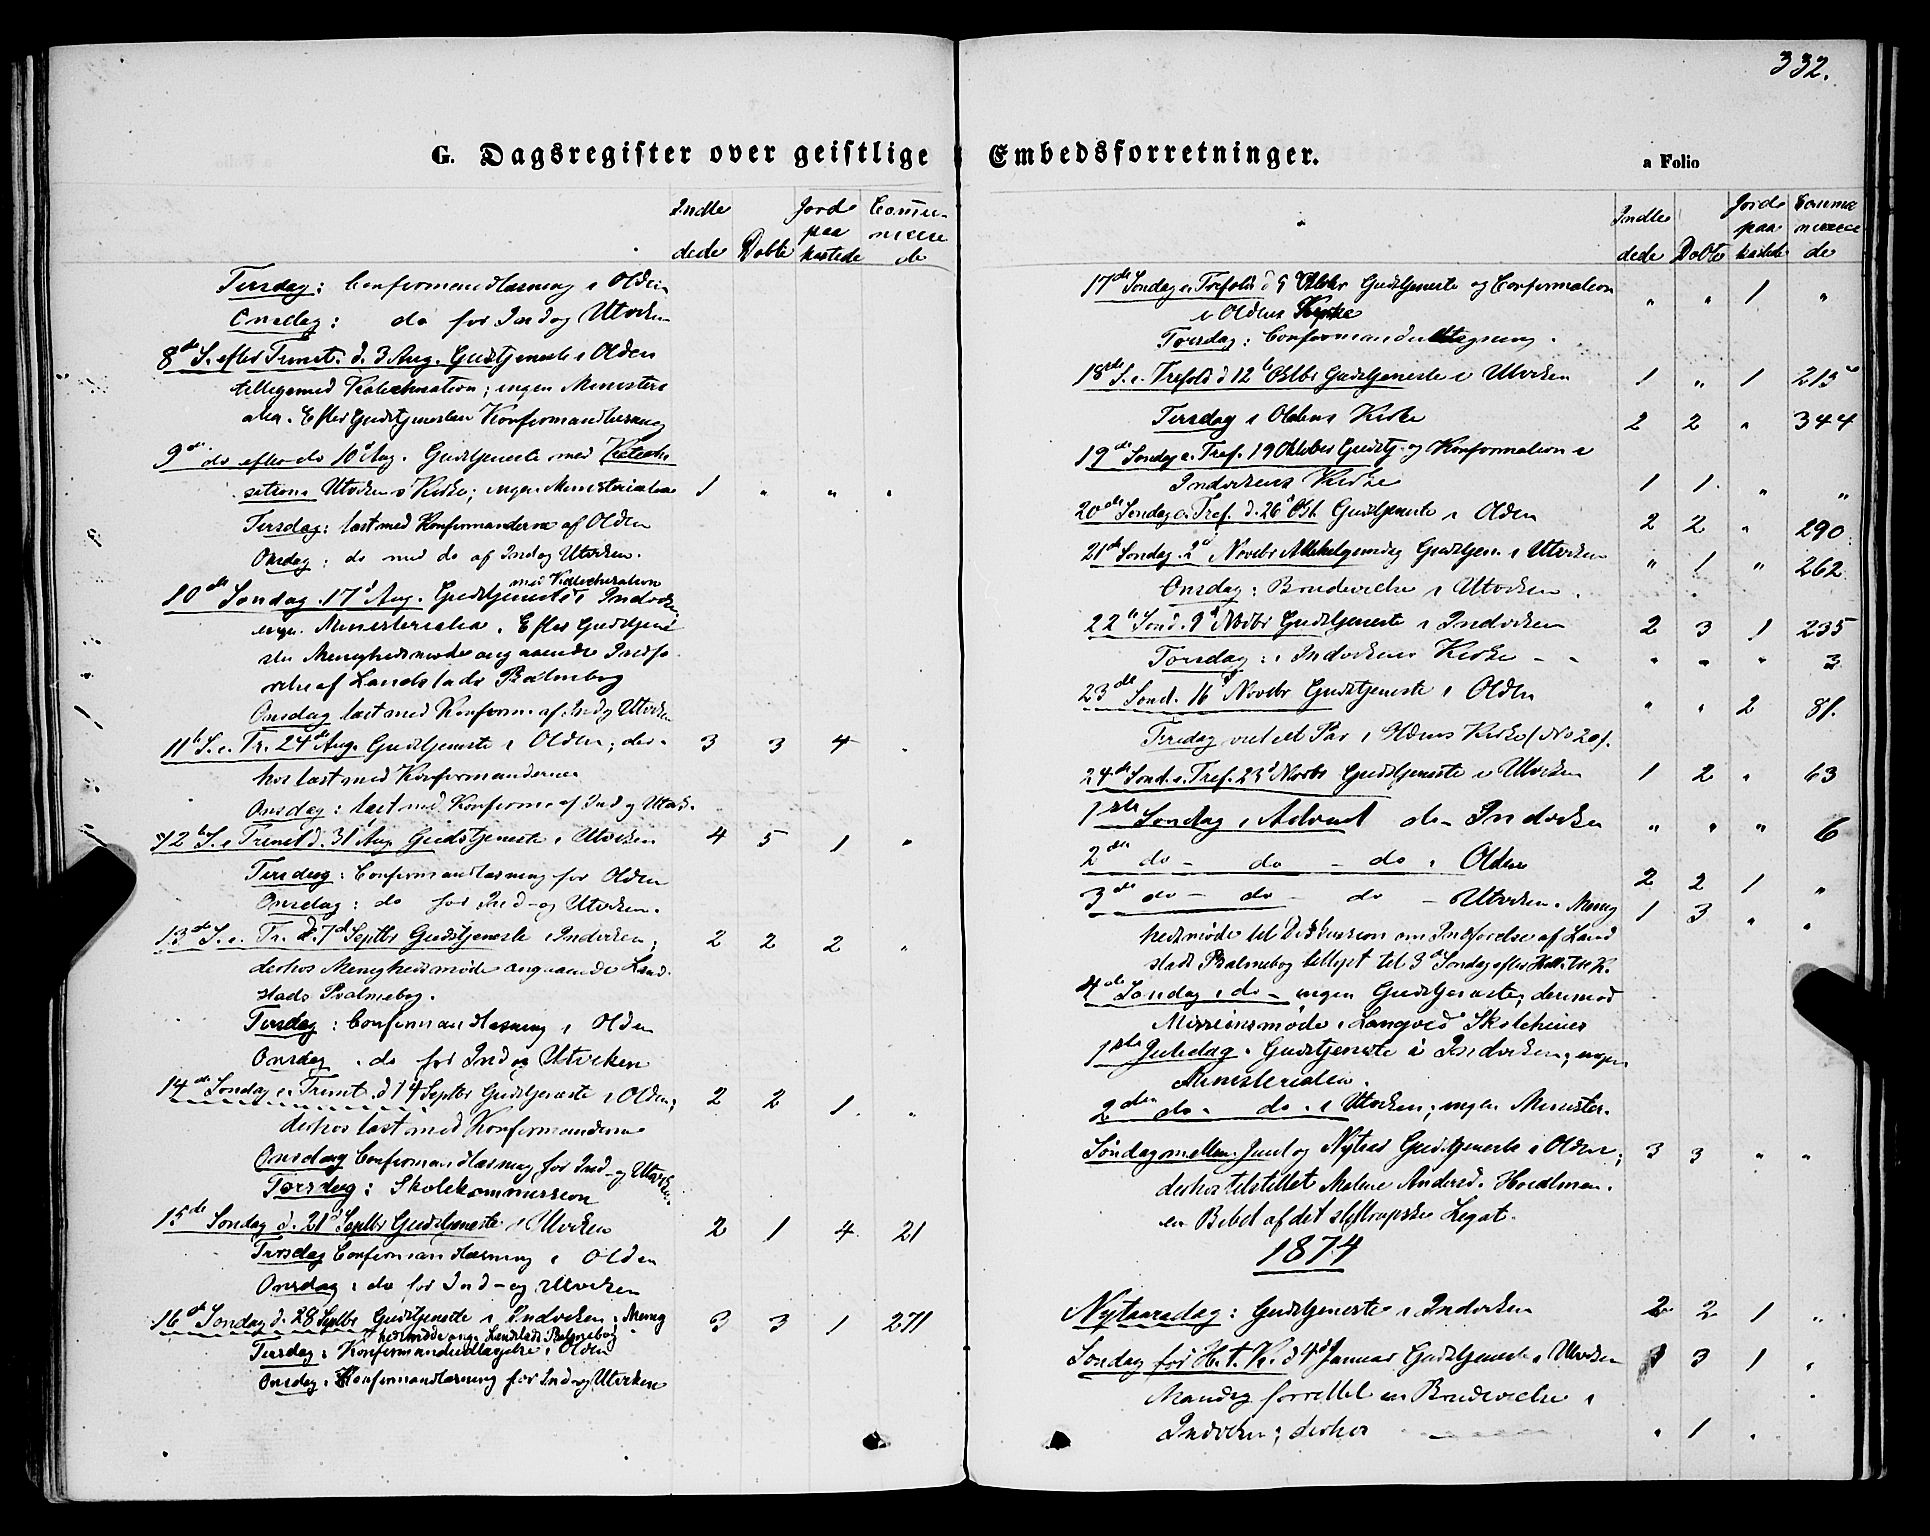 332.
G. Dagsregister over geistlige Embedsforretninger.
a Folio
Indle
dede
Døbte
Jord
paa
kastede
Commu-
nicere
de
Tirsdag: Confirmandlæsning i Olden
Onsdag: do for Ind og Utviken
8de S. efter Trinit. d. 3 Aug. Gudstjeneste i Olden
tilligemed Katechisation; ingen Ministeri
alia. Efter Gudstjenesten Konfirmandlæsning
9de do efter do 10d Aug. Gudstjeneste med Kateche
sation i Utvikens Kirke; ingen Ministerialia 1 " " "
Tirsdag: læst med Konfirmanderne af Olden
Onsdag: do med do af Ind og Utviken.
med Katechisation
10de Søndag 17d Aug. Gudstjeneste i Indviken
ingen Ministerialia. Efter Gudstjene
sten Menighedsmøde angaaende Indfø
relse af Landstads Psalmebog
Onsdag læst med Konfirm. af Ind og Utviken
11te S. e. Tr. 24de Aug. Gudstjeneste i Olden; der- 3 3 4 "
hos læst med Konfirmanderne
Onsdag: læst med Konfirm. af Ind og Utvik.
12te S. e. Trinit d. 31 Aug. Gudstjeneste i Utviken 4 5 1 "
Tirsdag: Confirmandlæsning for Olden
Onsdag: do for Ind- og Utviken.
13de S. e. Tr. d. 7d Septbr Gudstjeneste i Indviken; 2 2 2 "
derhos Menighedsmøde angaaende Land-
stads Psalmebog.
Tirsdag: Confirmandlæsning i Olden
Onsdag: do for Ind og Utviken
14de Søndag e. Trinit. d 14 Septbr Gudstjeneste i Olden; 2 2 1 "
derhos læst med Konfirmanderne
Onsdag Confirmandlæsning for Ind- og Utviken
Torsdag: Skolekommission
15de Søndag d. 21d Septbr Gudstjeneste i Utviken 2 1 4 21
Tirsdag Confirmandlæsning i Olden
Onsdag: do for Ind- og Utviken
16de Søndag d. 28 Septbr Gudstjeneste i Indviken; Menig 3 3 1 271
hedsmøde ang. Landstads Psalmebog
Tirsdag: Konfirmandudtagelse i Olden
Onsdag: Konfirmandlæsning for Ind og Utviken
Indle
dede
Døbte
Jorde
paa
kastede
Commu
nicere
de
17de Søndag e. Trefold. d 5 Oktbr Gudstjeneste og Confirmation " " 1 "
i Oldens Kirke
Torsdag: Confirmandudtagning.
18de S. e. Trefold d 12te Oktbr Gudstjeneste i Utviken 1 " 1 215
Tirsdag i Oldens Kirke 2 2 " 344
19de Søndag e. Tref. 19 Oktober Gudstj. og Konfirmation i
Indvikens Kirke 1 1 " "
20de Søndag e. Tref. d. 26d Okt. Gudstjeneste i Olden 2 2 " 290
21de Søndag. 2d Novbr Allehelgensdag Gudstjen. i Utviken " 1 " 262
Onsdag: Brudevielse i Utviken.
22de Sønd. 9d Novbr Gudstjeneste i Indviken 2 3 1 235
Torsdag: i Indvikens Kirke - - " " " 3
23de Sønd. 16 Novbr Gudstjeneste i Olden " " 2 81.
Tirsdag viet et Par i Oldens Kirke (No 20).
24de Sønd. e. Tref. 23d Novbr Gudstjeneste i Utviken 1 2 " 63
1ste Søndag i Advent do- Indviken " " " 6
2den do - do - do i Olden 2 2 1 "
3de do - do do - Utviken. Menig 1 3 " "
hedsmøde til Diskussion om Indførelse af Land
stads Psalmebog tillyst til 3de Søndag efter Hell. Tre K.
4de Søndag i do - ingen Gudstjeneste, derimod
Missionsmøde i Langved Skolehuus
1ste Juledag. Gudstjeneste i Indviken; ingen
Ministerialia.
2den do. do. i Utviken; ingen Minister.
Søndag mellem Juul og Nytaar Gudstjeneste i Olden; 3 3 " "
derhos tilstillet Malene Andersd. Hoalmen.
en Bibel af det
Legat.
1874
Nytaarsdag: Gudstjeneste i Indviken 2 2 1 "
Søndag før H. t. K. d 4d Januar Gudstjeneste i Utviken 3 1 "
Mandag forrettet en Brudevielse i
Indviken; derhos " 1 "